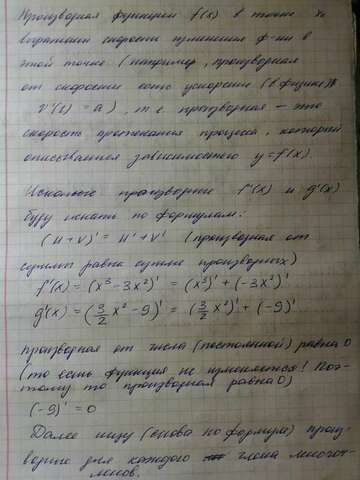 Производная функции f(x) в точке x₀
выражает скорость изменения ф-ии в
этой точке (например, производная
от скорости есть ускорение (в физике)
V'(t) = a), т.е. производная – это
скорость протекания процесса, который
описывается зависимостью y=f(x).
Искомые производные f'(x) и g'(x)
буду искать по формулам:
(u+v)' = u'+v' (производная от
суммы равна сумме производных)
f'(x) = (x³ - 3x²)' = (x³)' + (-3x²)'
g'(x) = (3/2 x² - 9)' = (3/2 x²)' + (-9)'
производная от числа (постоянной) равна 0
(то есть функция не изменяется! Поэ-
тому то производная равна 0)
(-9)' = 0
Далее ищу (снова по формуле) произ-
водные для каждого члена многоч-
ленов.